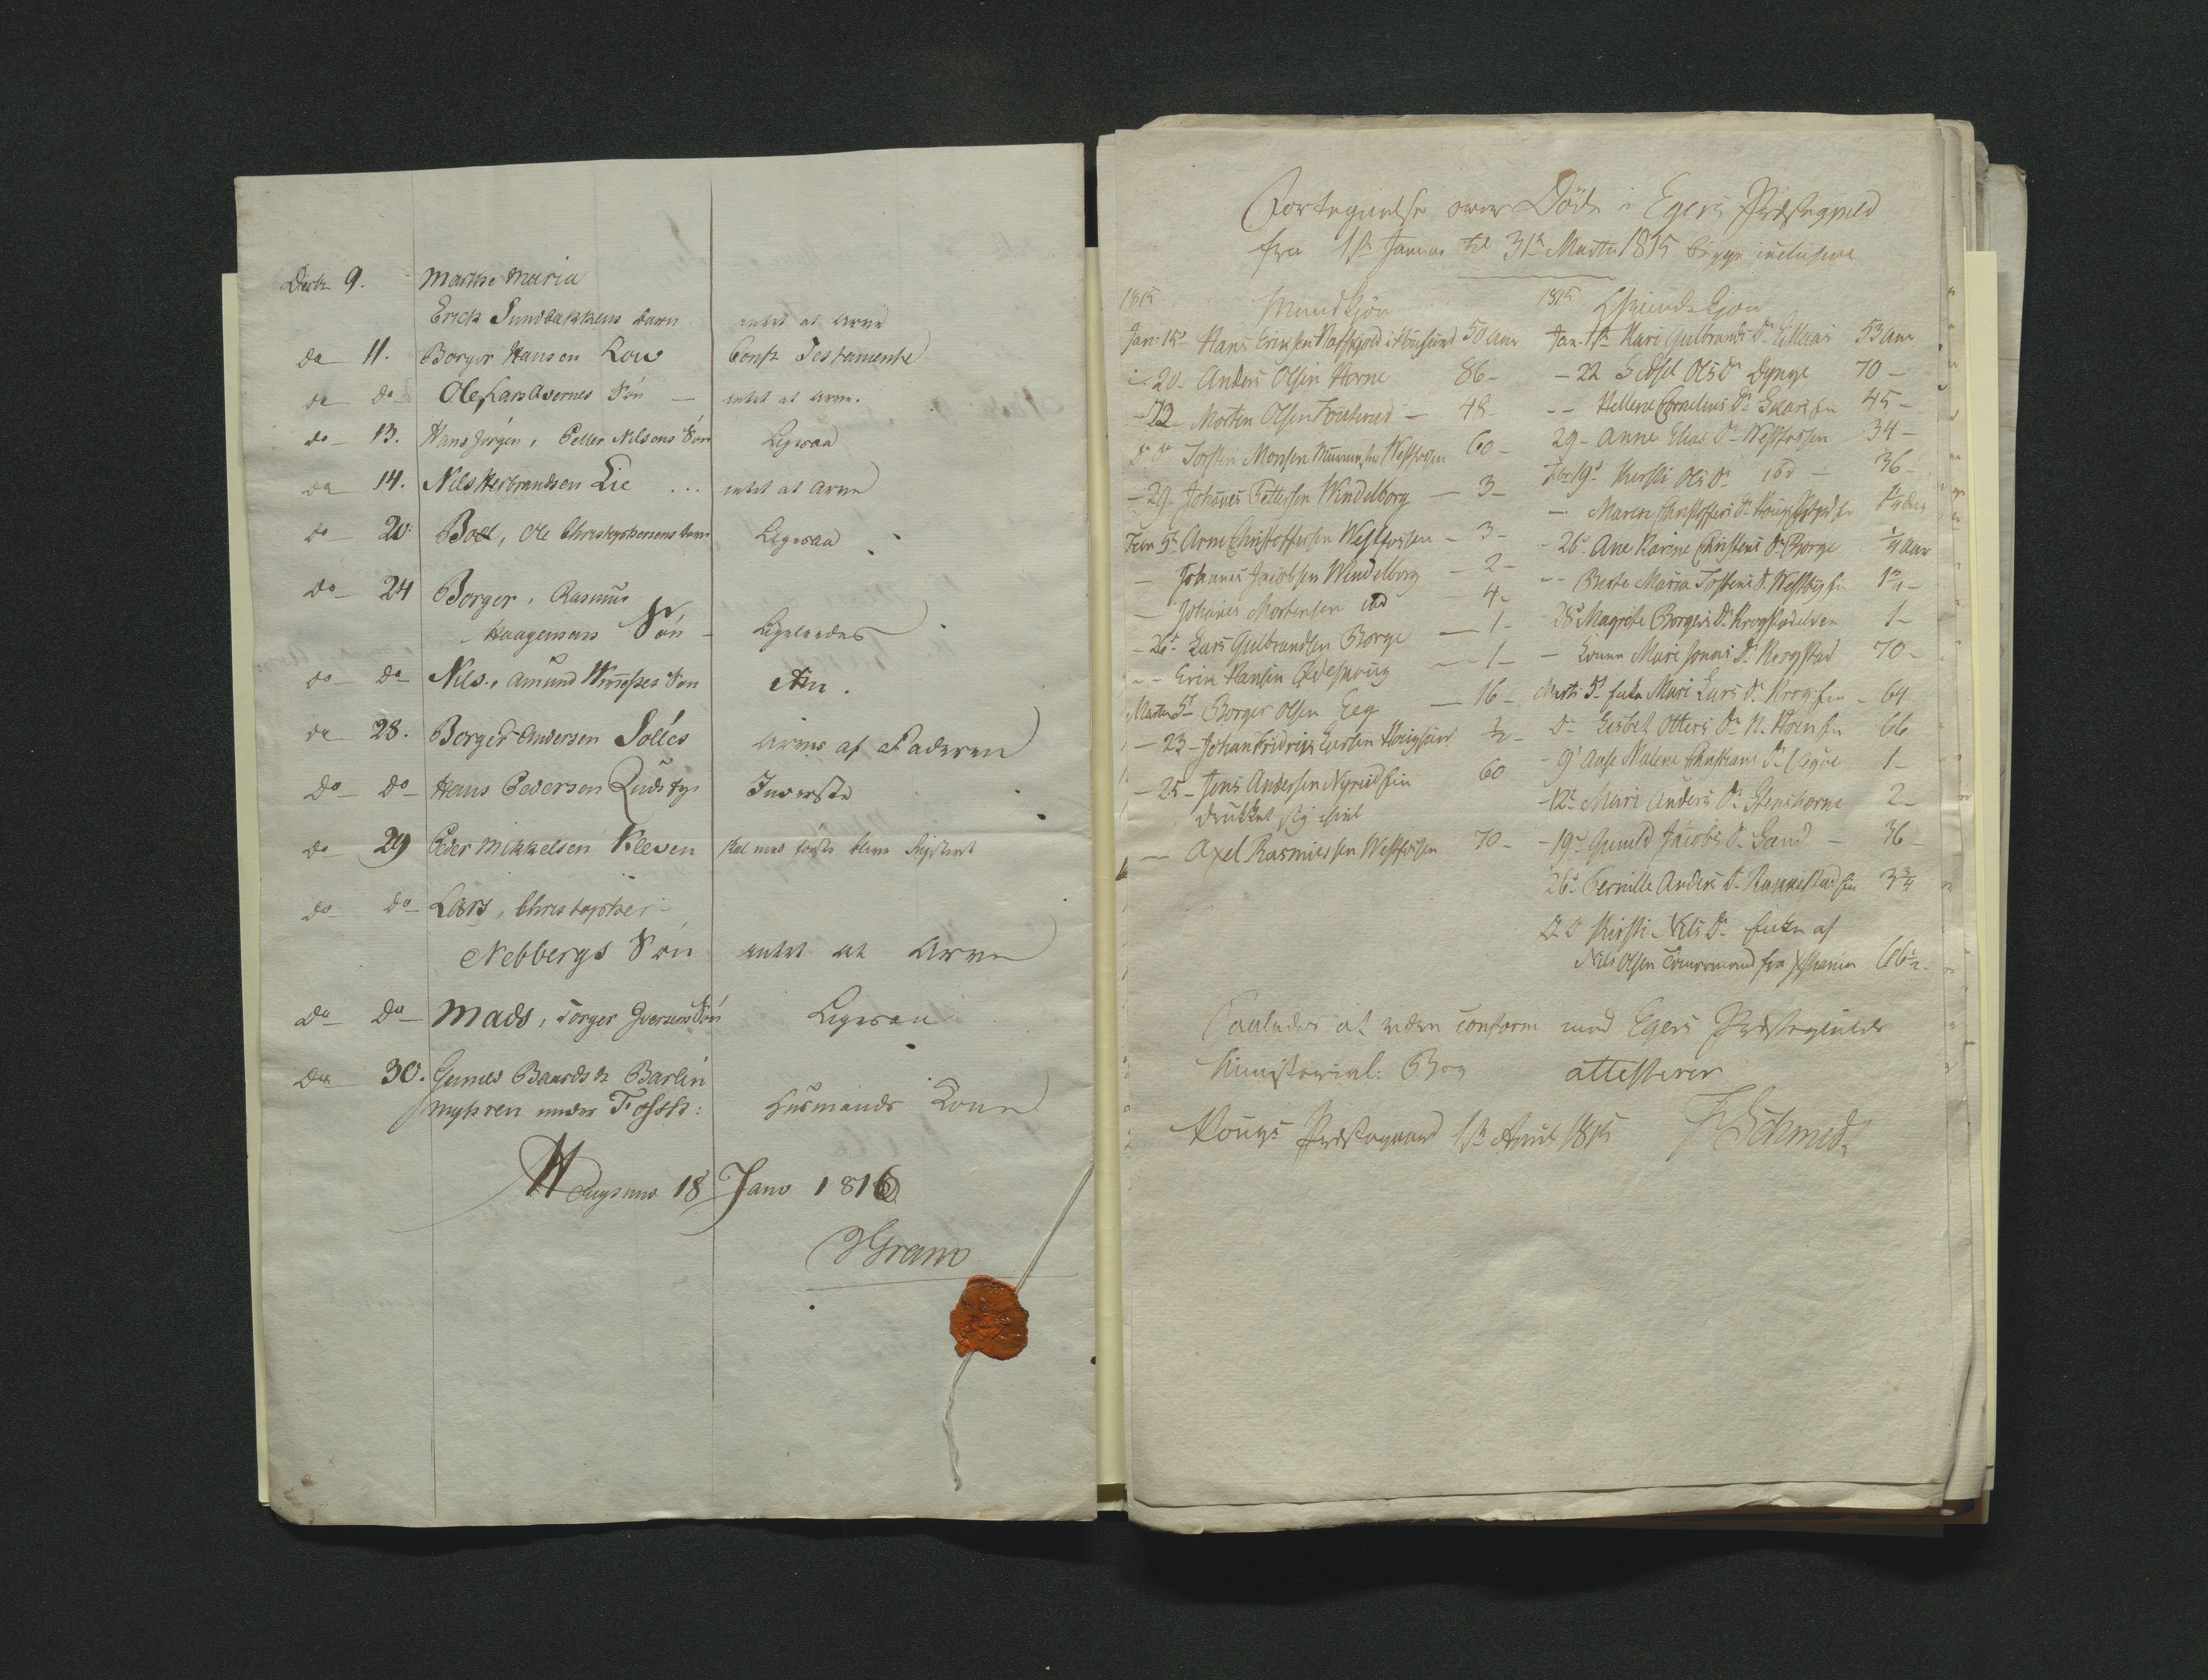 Decbr 9. Marthe Maria
Erich Sundbakkens barn intet at arve
do 11. Borger Hansen Lou Conf: Testamente
do do Ole, Lars Overnes Søn — intet at arve.
do 13. Hans Jørgen, Peder Nilsens Søn Ligesaa
do 14. Nils Herbrandsen Lie ... intet at arve
do 20. Boel, Ole Christophersens barn Ligesaa
do 24 Borger, Rasmus
Haagensens Søn — Ligeledes
do do Nils, Amund Søn
do 28. Borger Andersen Solies arves af Faderen
do do Hans Pedersen Inderste
do 29 Peder Mikkelsen Kleven skal med første blive
do do Lars, Christopher
Nebbergs Søn intet at arve
do do Mads, Torger Iversens Søn Ligesaa
do 30. Gunild Baards Dr Barlin
myhren under Fossh: Huusmands Kone
Haugsund 18 Janv 1816
HGram
Fortegnelse over Døde i Egers Præstegield
fra 1st Januar til 31te Martii 1815 begge inclusive
1815 Mandkjøn
Jan: 15d Hans Erichsen i Hougsund 50 aar
- 20 - Anders Olsen Horne 86 -
- 22 - Morten Olsen — 48 -
do do Torsten Monsen Westfossen 60 -
- 29 - Johannes Pettersen Windelborg — 3 -
Febr 5t Arne Christoffersen Westfossen — 3 -
— Johannes Jacobsen Windelborg — 2 -
— Johannes Mortensen ibd — 4 -
- 26d Lars Gulbrandsen Borge — 1 -
- - Erik Hansen — 1 -
Martii 5t Borger Olsen Eeg — 16 -
- 23 - Johan Fridrich Larsen Hougsund ½ -
- 25 - Jens Andersen 60
drukket sig ihiel
— Axel Rasmussen Westfossen 70 -
1815 Qvindekjøn
Jan: 1st Kari Gulbrands Dr 53 aar
- 22 Sidsel Ols Dr Dynge 70 -
- - Hellene Cornelius Dr 45 -
29 - Anne Elias Dr Westfossen 34 -
Febr 19d Kirsti Ols Dr ibd — 36 -
— Maren Christoffers Dr
- 26d Ane Karine Christens Dr Borge ¼ aar
- - Berte Maria Dr
- 28d Magrete Borgers Dr Krogstadelven 1 -
— Konen Mari Jonas Dr Krogstad 70 -
Marti 5t Enke Mari Lars Dr 64
do Lisbet Otters Dr 66
- 9d Anse Malene Christians Dr 1 -
- 12d Mari Anders Dr Stenshorne 2 -
- 19d Gunild Jacobs Dr Sand — 36 -
26d Pernille Anders Dr 3¾
do Kirsti Nils Dr Enke af
Nils Olsen fra 66½ -
Saaledes at være conform med Egers Præstegields
Ministerial: Bog attesterer
Hougs Præstegaard 1st April 1815 Schmidt